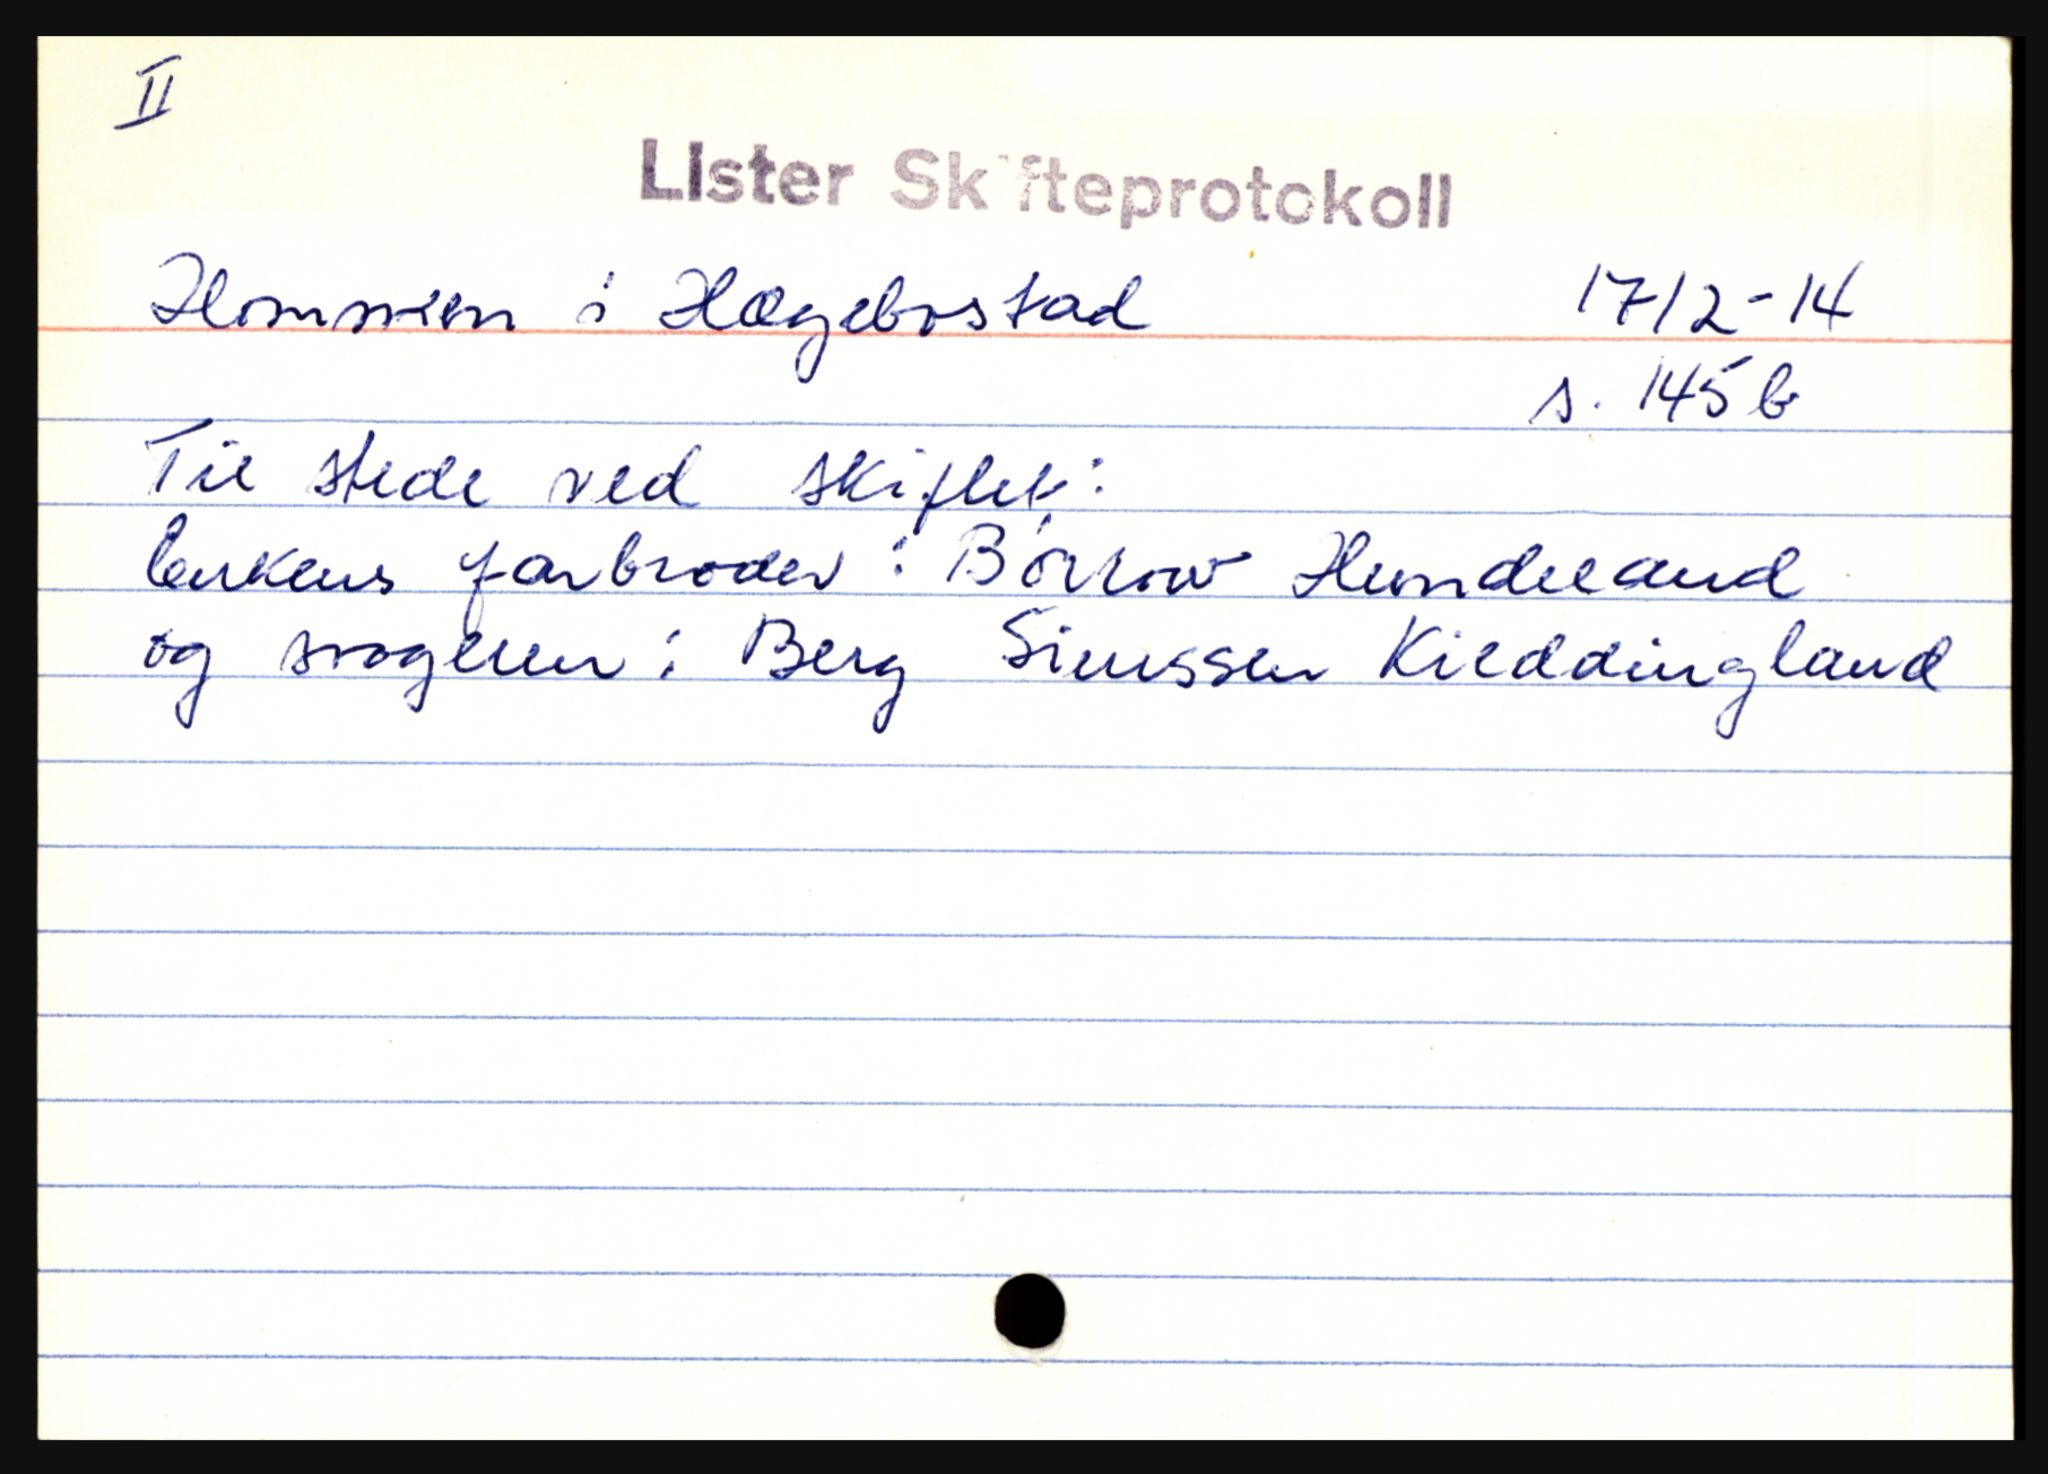 II
Lister Skifteprotokoll
Hommen i Hægebostad 17/2-14
s. 145b
Til stede ved skiftet:
enkens farbroder: Børrow Hundeland
og svogeren: Berg Simssen Kieddingland